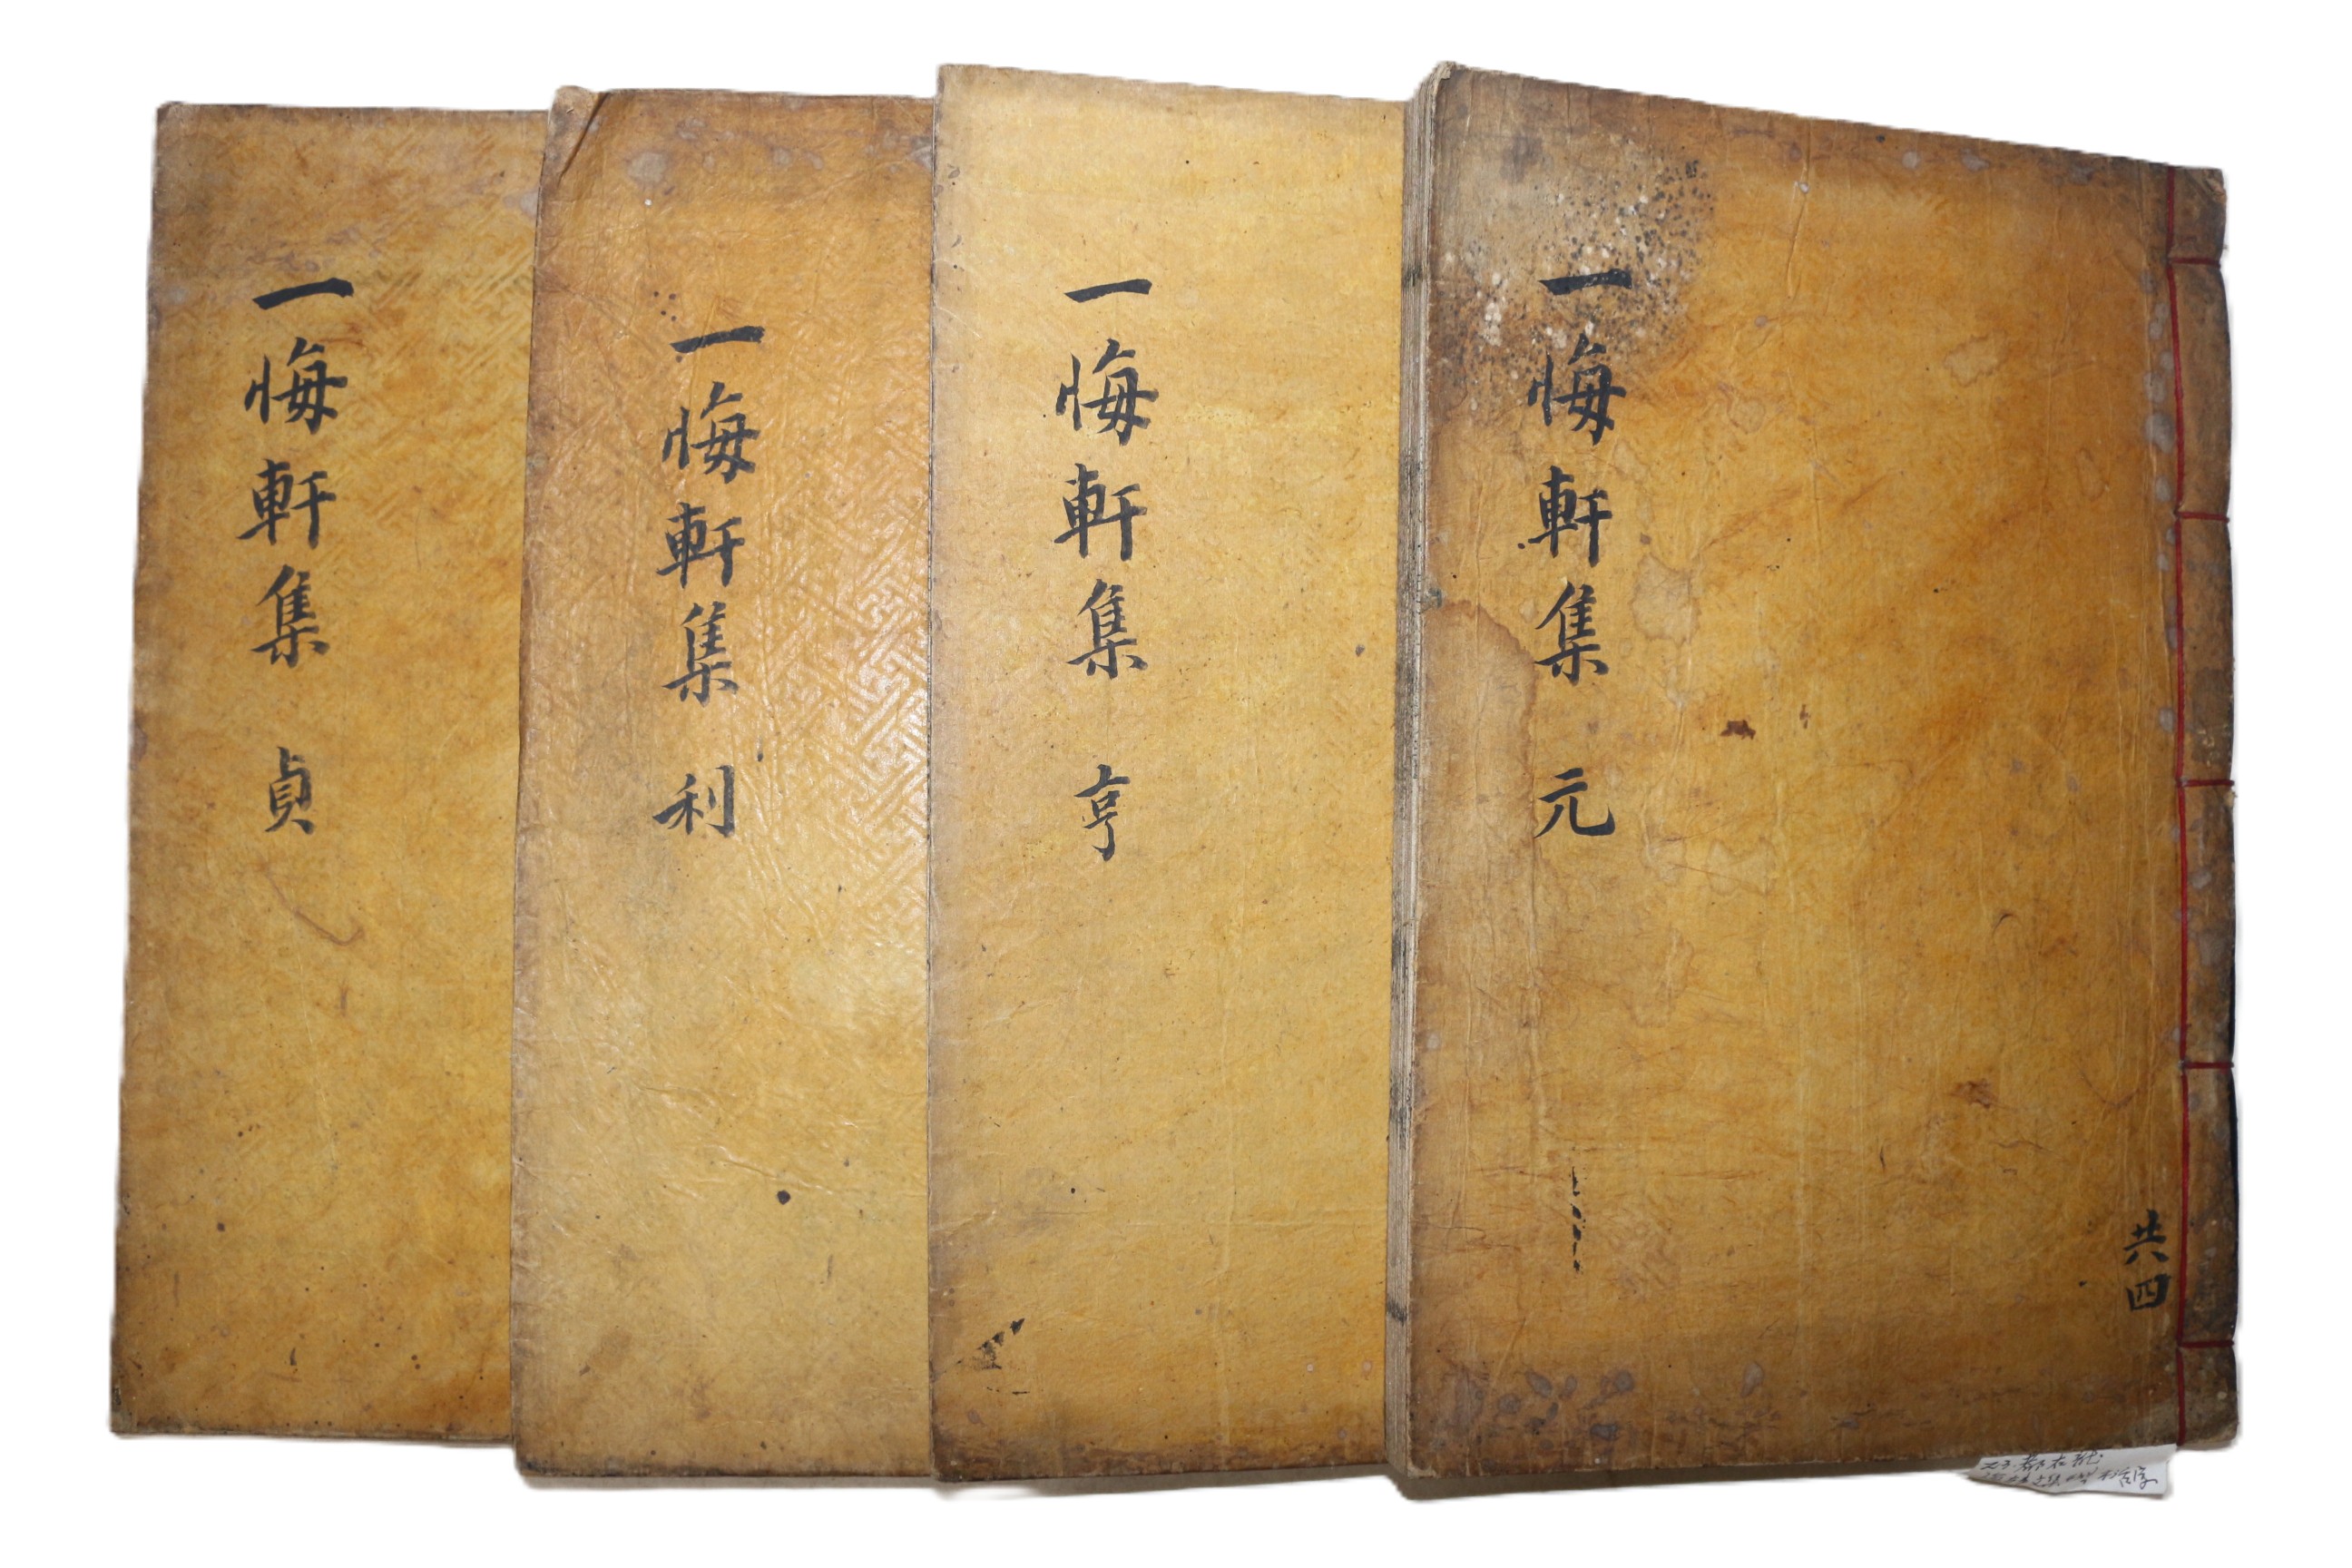 一悔軒集 元
共四
一悔軒集 亨
一悔軒集 利
一悔軒集 貞